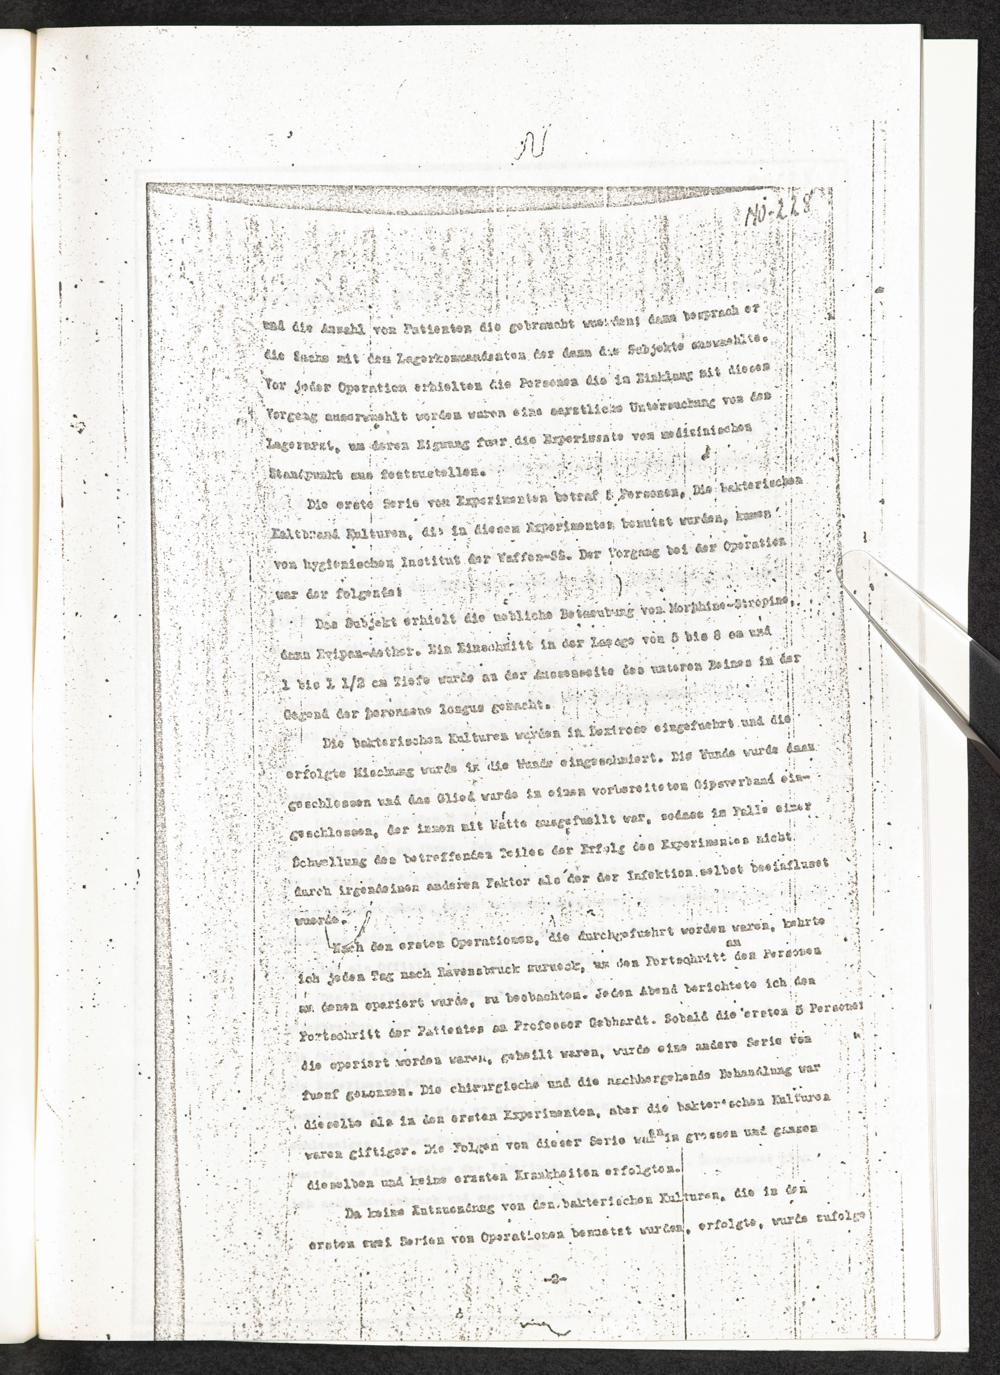 NO-228
und die Anzahl von Patienten die gebraucht wuerden; dann besprach er
die Sache mit dem Lagerkommandanten der dann die Subjekte auswaehlte.
Vor jeder Operation erhielten die Personen die in Einklang mit diesem
Vorgang auserwaehlt worden waren eine aerztliche Untersuchung von dem
Lagerarzt, um deren Eignung fuer die Experimente vom medizinischen
Standpunkt aus festzustellen.
Die erste Serie von Experimenten betraf 5 Personen. Die bakterischen
Kaltbrand Kulturen, die in diesen Experimenten benutzt wurden, kamen
vom hygienischen Institut der Waffen-SS. Der Vorgang bei der Operation
war der folgende:
Das Subjekt erhielt die uebliche Betaeubung von Morphine-Atropine,
dann Evipan-Aether. Ein Einschnitt in der Laenge von 5 bis 8 cm und
1 bis 1 1/2 cm Tiefe wurde an der Aussenseite des unteren Beines in der
Gegend der peronaeus longus gemacht.
Die bakterischen Kulturen wurden in Dextrose eingefuehrt und die
erfolgte Mischung wurde in die Wunde eingeschmiert. Die Wunde wurde dann
geschlossen und das Glied wurde in einen vorbereiteten Gipsverband ein-
geschlossen, der innen mit Watte ausgefuellt war, sodass im Falle einer
Schwellung des betreffenden Teiles der Erfolg des Experimentes nicht
durch irgendeinen anderen Faktor als der der Infektion selbst beeinflusst
wuerde.
Nach den ersten Operationen, die durchgefuehrt worden waren, kehrte
ich jeden Tag nach Ravensbruck zurueck, um den Fortschritt an den Personen
an denen operiert wurde, zu beobachten. Jeden Abend berichtete ich den
Fortschritt der Patienten an Professor Gebhardt. Sobald die ersten 5 Personen
die operiert worden waren, geheilt waren, wurde eine andere Serie von
fuenf genommen. Die chirurgische und die nachhergehende Behandlung war
dieselbe als in den ersten Experimenten, aber die bakterischen Kulturen
waren giftiger. Die Folgen von dieser Serie waren in grossen und ganzen
dieselben und keine ernsten Krankheiten erfolgten.
Da keine Entzuendung von den bakterischen Kulturen, die in den
ersten zwei Serien von Operationen benuetzt wurden, erfolgte, wurde zufolge
-2-